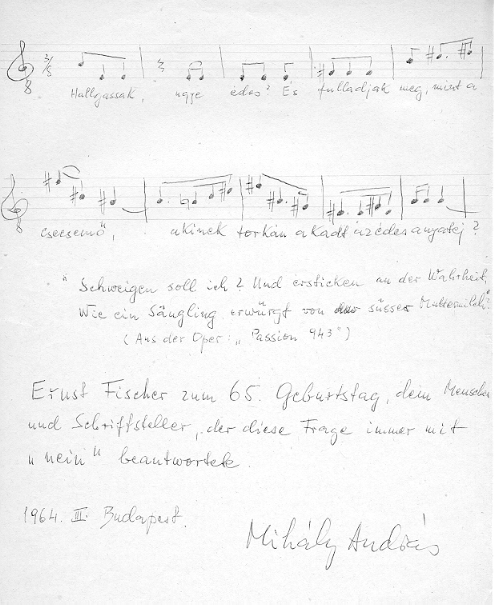 Hallgassak, ugye édes? És fulladjak meg, mint a
csecsemő, akinek torkán akadt az édes anyatej?
"Schweigen soll ich? Und ersticken an der Wahrheit,
Wie ein Säugling erwürgt von der süsser Muttermilch?"
(Aus der Oper: „Passion 943")
Ernst Fischer zum 65. Geburtstag, dem Menschen
und Schriftsteller, der diese Frage immer mit
„nein" beantwortete.
1964. III. Budapest.
Mihály András